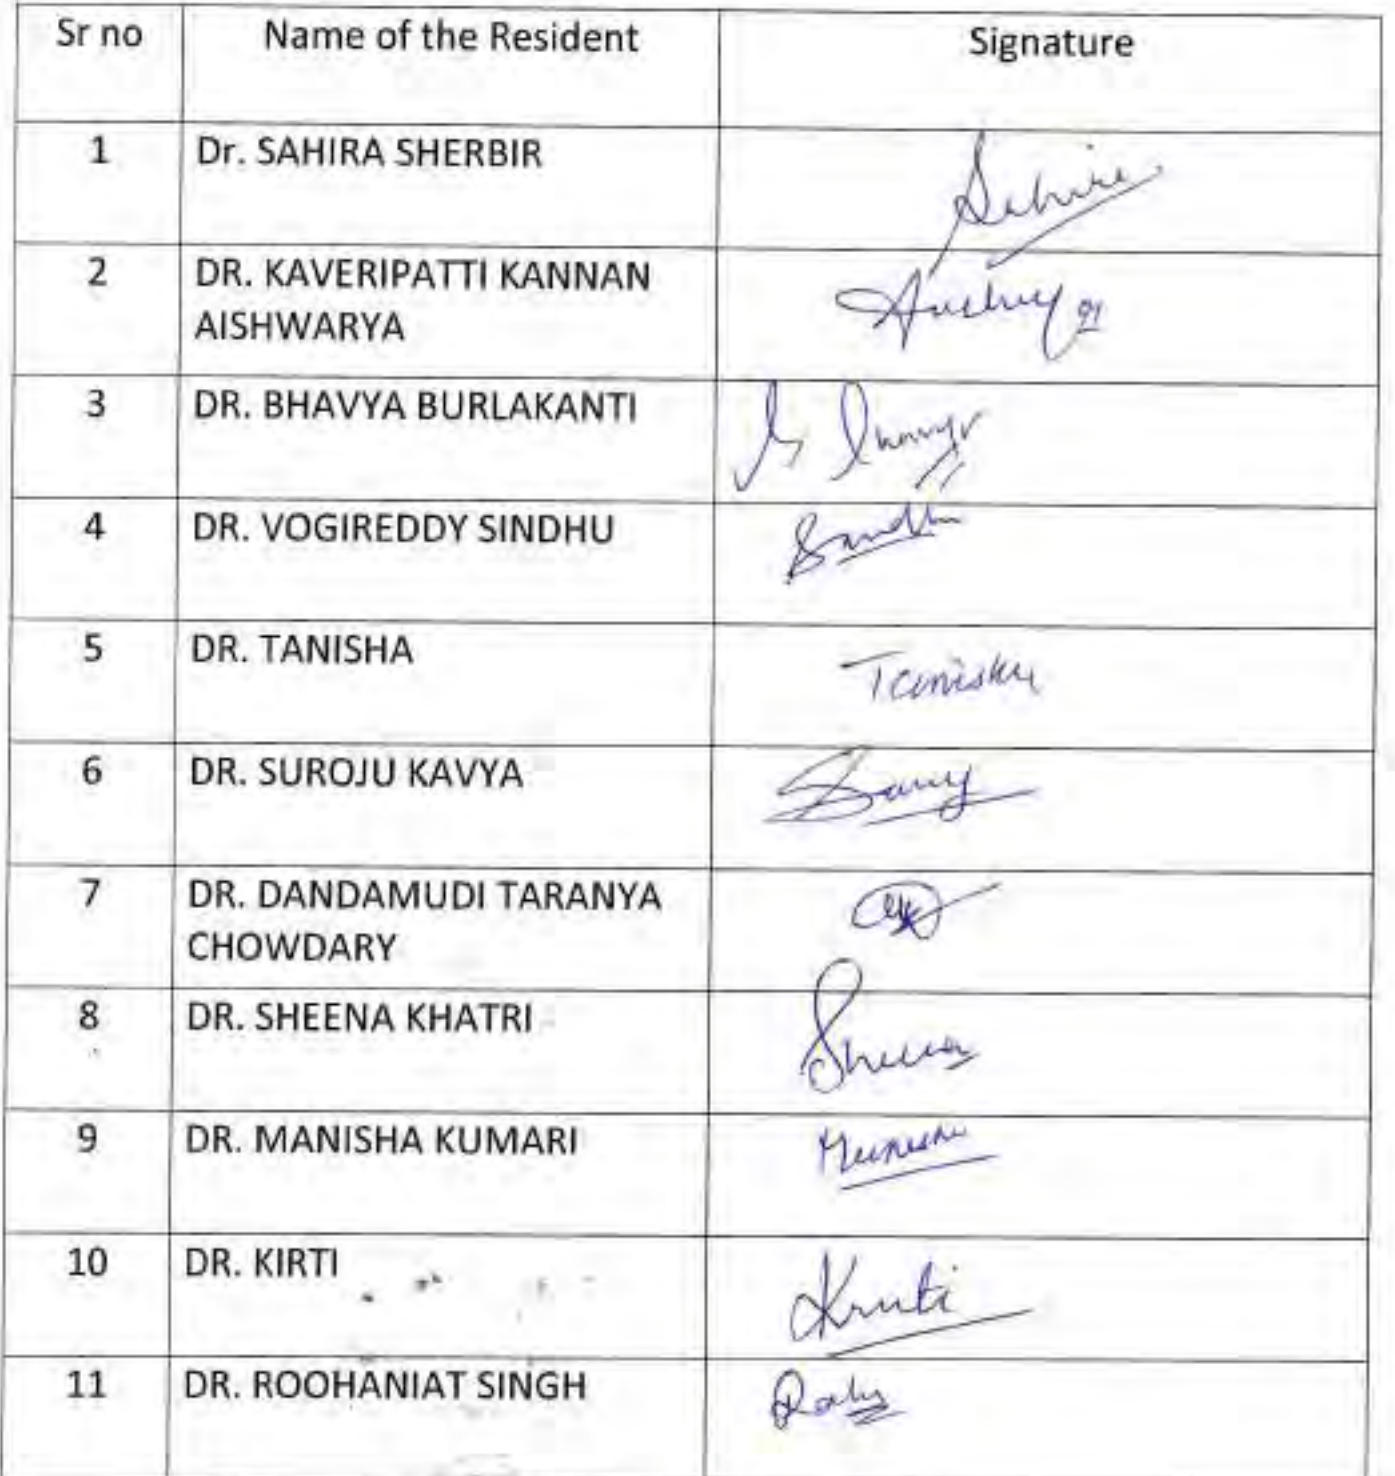 Sr no Name of the Resident Signature
1 Dr. SAHIRA SHERBIR Sahira
2 DR. KAVERIPATTI KANNAN
AISHWARYA
3 DR. BHAVYA BURLAKANTI
4 DR. VOGIREDDY SINDHU Sindhu
5 DR. TANISHA Tanisha
6 DR. SUROJU KAVYA
7 DR. DANDAMUDI TARANYA
CHOWDARY
8 DR. SHEENA KHATRI Sheena
9 DR. MANISHA KUMARI Manisha
10 DR. KIRTI Kirti
11 DR. ROOHANIAT SINGH